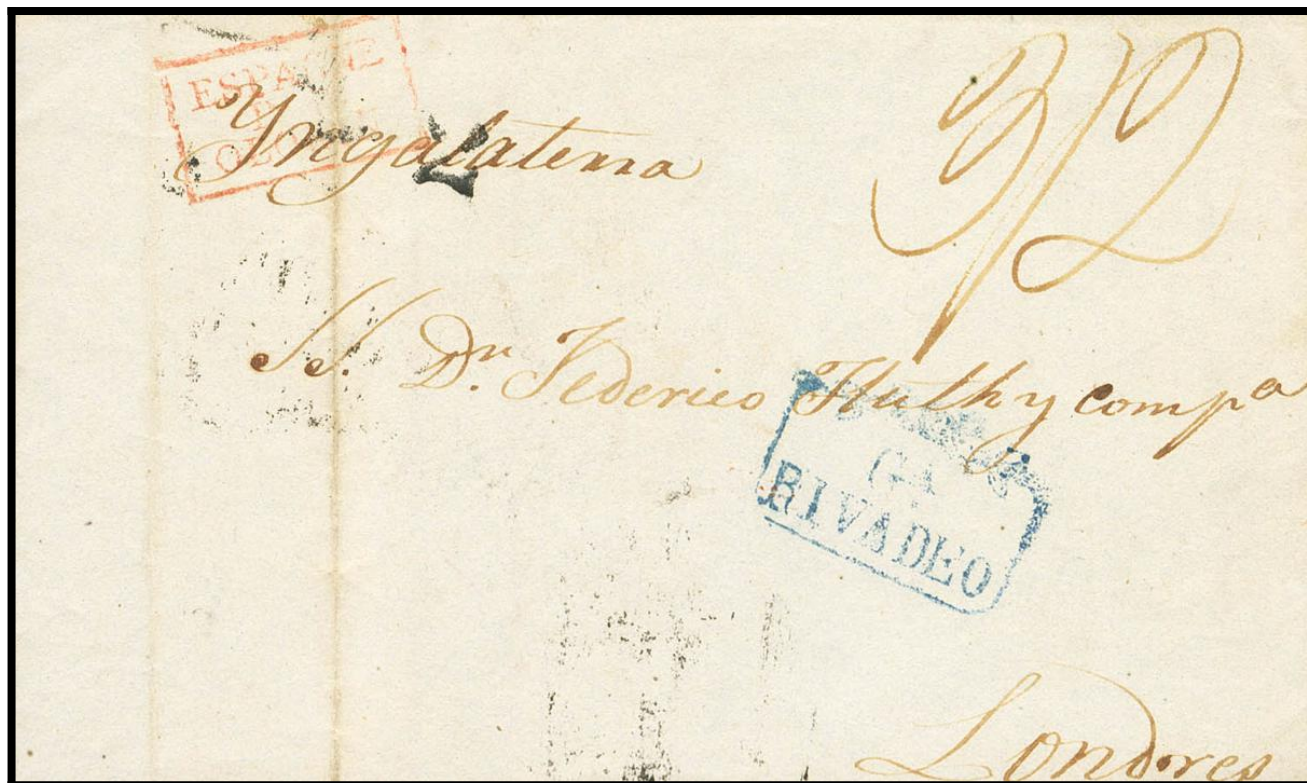 Yngalaterra
3/2
SS. Dn. Federico Huth y compa
GA
RIVADEO
Londres